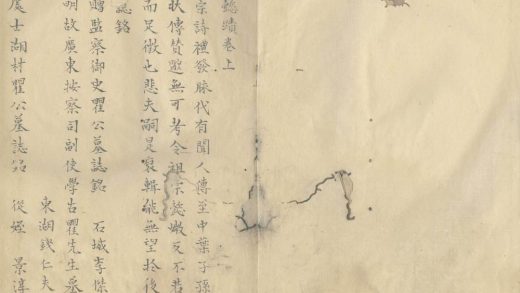 懿蹟卷上
宗詩禮發脉代有聞人傳至中葉子孫
狀傳贊邈無可考令祖宗懿媺反不若
而足徵也悲夫嗣是裒輯能無望於後
誌銘
贈監察御史瞿公墓誌銘 石城李傑
明故廣東按察司副使學古瞿先生墓
東湖錢仁夫
處士湖村瞿公墓誌銘 從姪 景淳